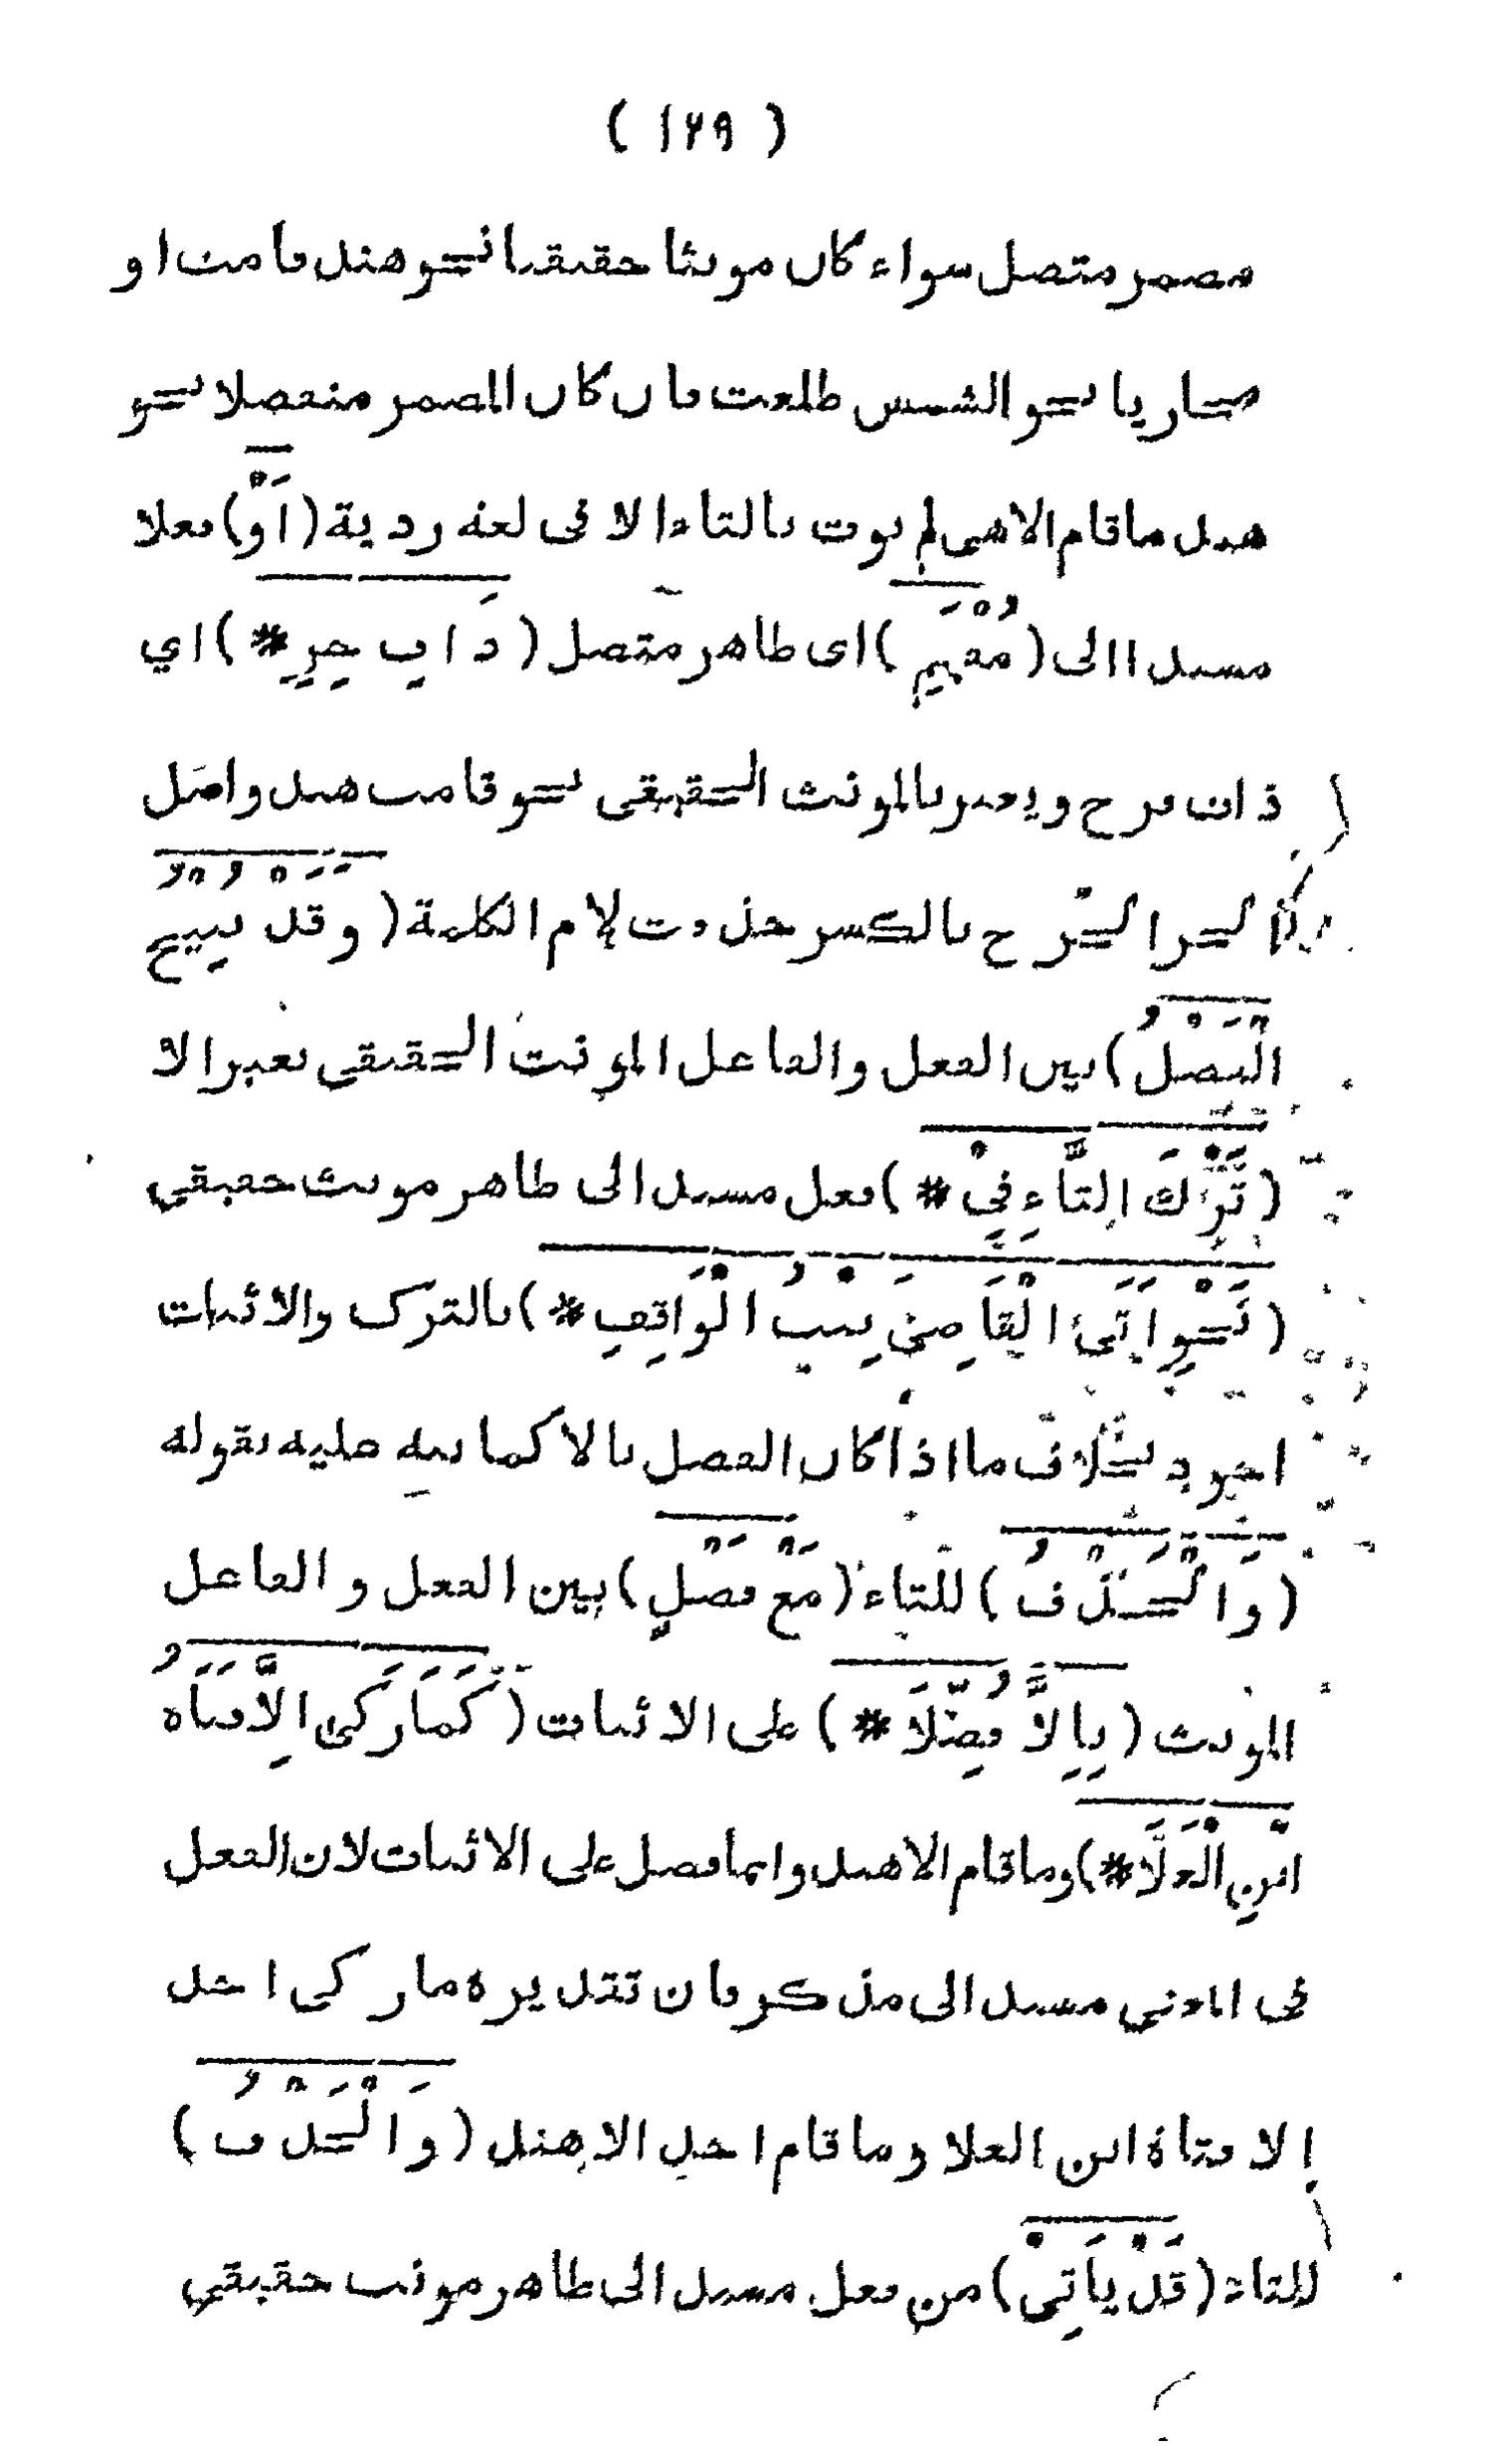 ( ١٢٩ )
مضمر متصل سواء كان مونثا حقيقيا نحو هند قامت او
مجازيا نحو الشمس طلعت فان كان المضمر منفصلا نحو
هند ما قام الا هي لم يوت بالتاء الا في لغة ردية ( اَوْ ) فعلا
مسندا الى ( مُفْهِمِ ) اى ظاهر متصل ( ذَاتِ حِرِ * ) اي
ذات فرح ويعبر بالمونث الحقيقي نحو قامت هند واصَل
الحر الحرح بالكسر حذفت لام الكلمة ( وَقَدْ يُبِيحُ
الْفَصْلُ ) بين الفعل والفاعل المونث الحقيقي بغير الا
( تَرْكَ التَّاءِ فِيْ * ) فعل مسند الى ظاهر مونث حقيقي
( نَحْوِ اَتَى الْقَاضِيَ بِنْتُ الْوَاقِفِ * ) بالترك والاثبات
اجود بخلاف ما اذا كان الفصل بالا كما نبه عليه بقوله
( وَالْحَذْفُ ) للتاء ( مَعْ فَصْلٍ ) بين الفعل والفاعل
المونث ( بِاِلَّا فُضِّلَا * ) على الاثبات ( كَمَا زَكَى اِلَّا فَتَاةُ
ابْنِ الْعَلَا * ) وما قام الا هند وانما فضل على الاثبات لان الفعل
في المعني مسند الى مذكر فان تقديره ما زكى احد
الا فتاة ابن العلا وما قام احد الا هند ( وَالْحَذْفُ )
للتاء ( قَدْ يَاْتِيْ ) من فعل مسند الى ظاهر مونث حقيقي